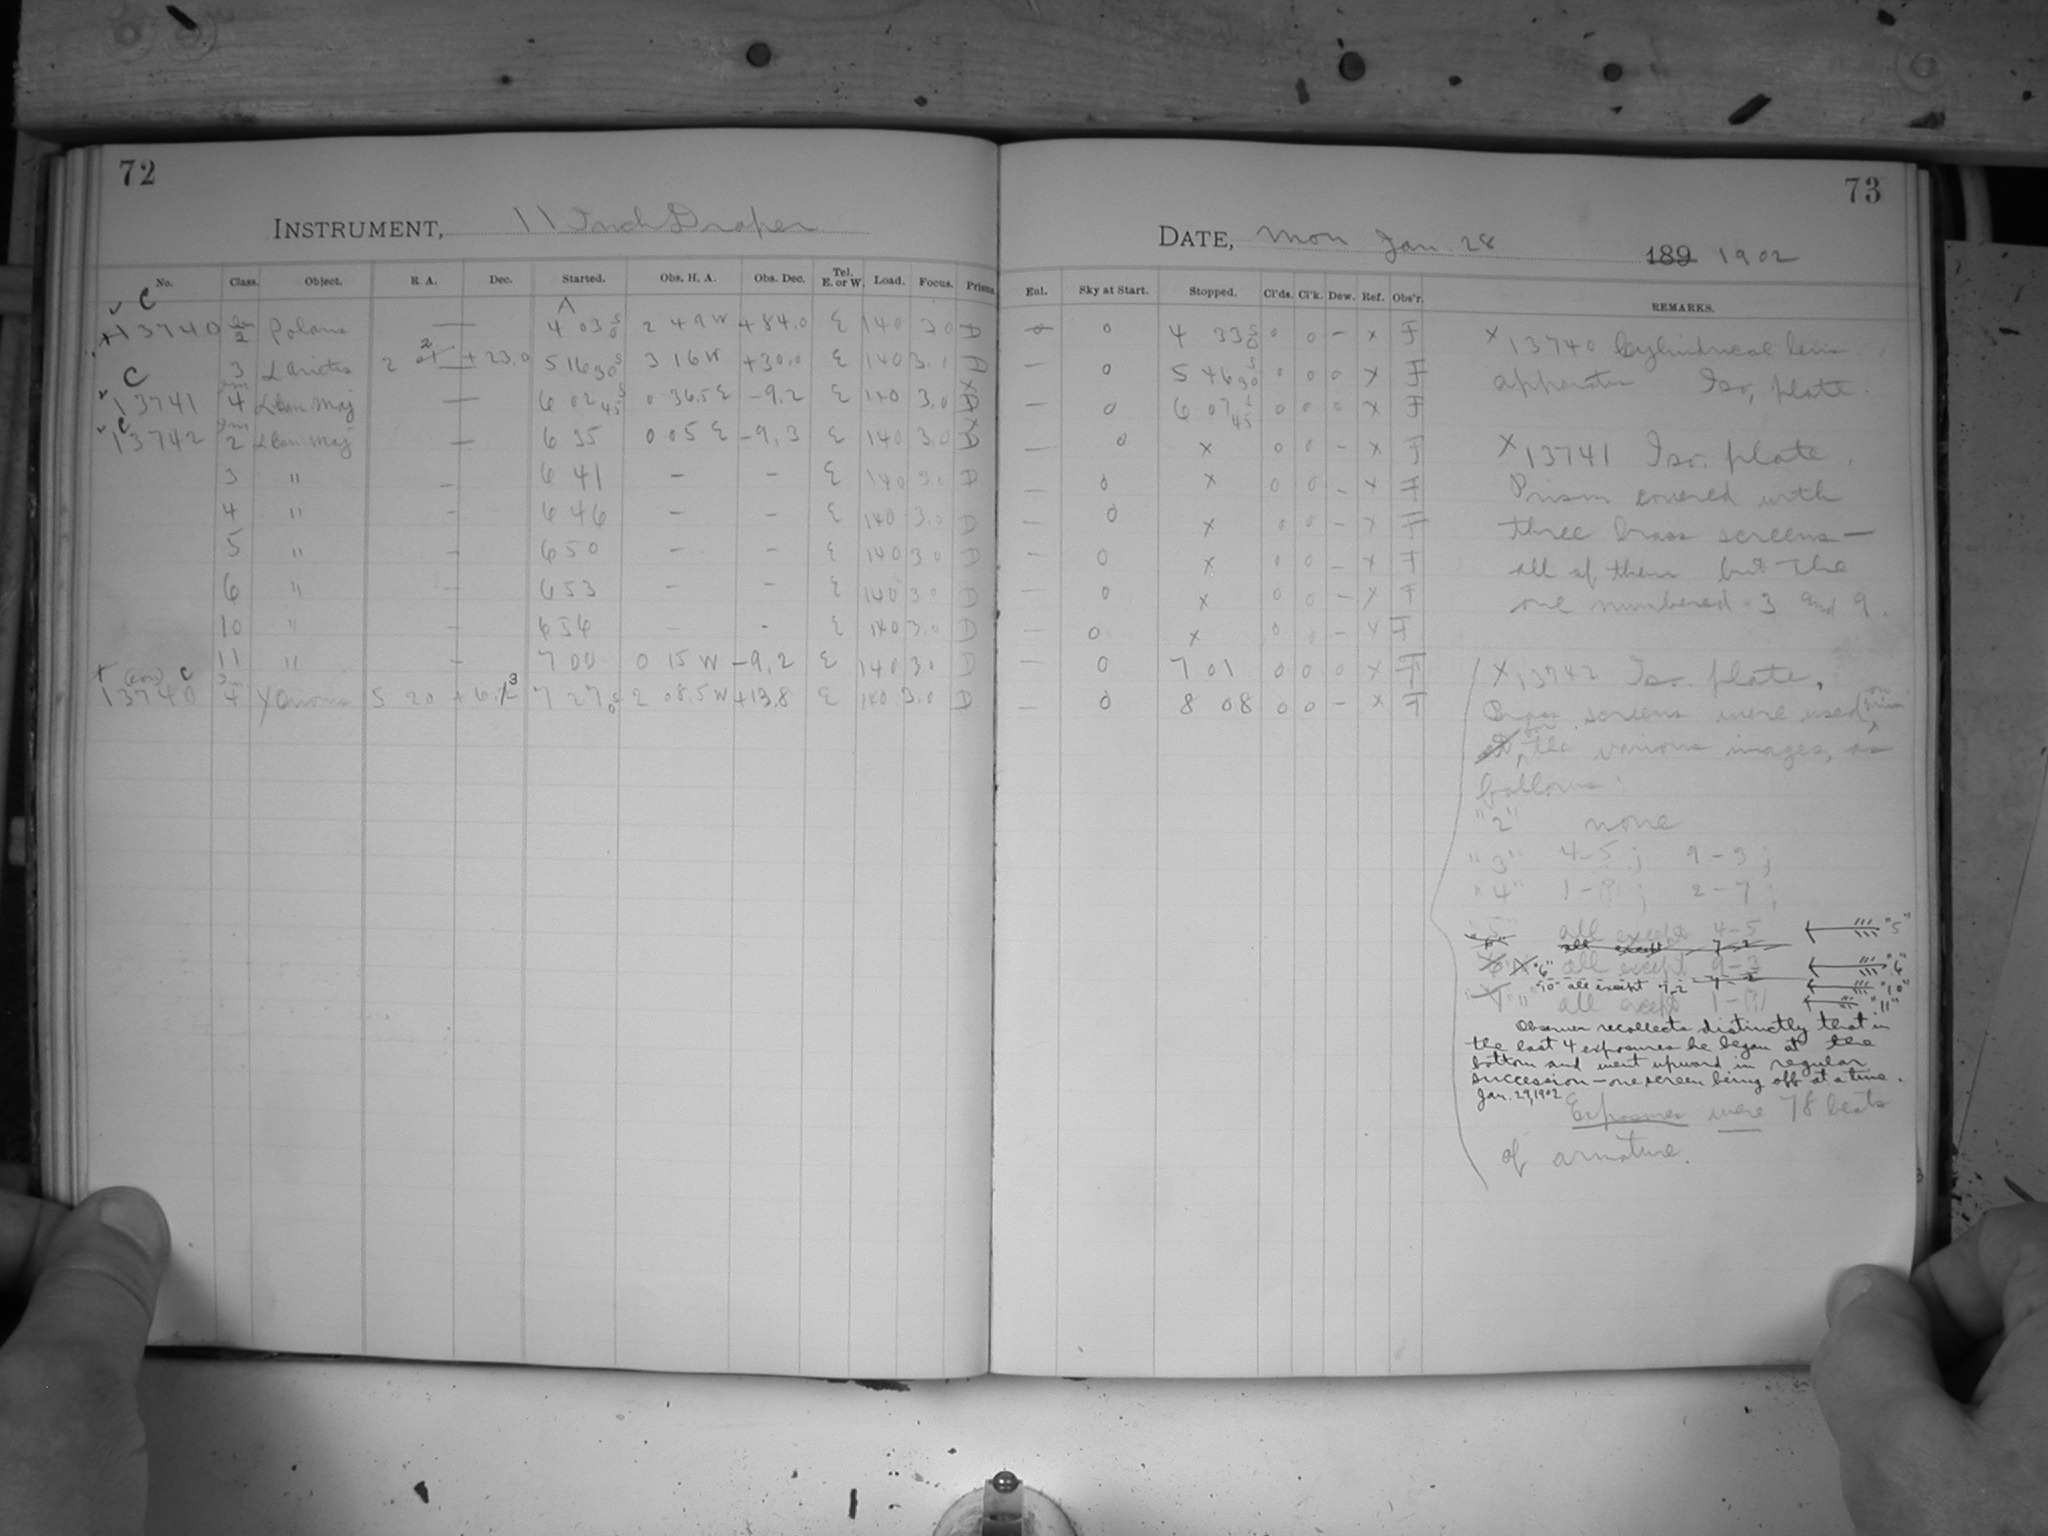 72
INSTRUMENT, 11 Inch Draper
No. Class. Object. R. A. Dec. Started. Obs. H. A. Obs. Dec. Tel. E. or W. Load. Focus. Prism.
C
A
13740 2 Polaris — 4 03 2 49 W +84.0 E 140 3.0 A
3 α Arietis 2 2 +23.0 5 16 30 3 16 W +30.0 E 140 3.1 A
C
13741 4 α Can Maj — 6 02 45 0 36.5 E -9.2 E 140 3.0 A
C
13742 2 α Can Maj — 6 35 0 05 E -9.3 E 140 3.0 A
3 " – 6 41 – – E 140 3.0 A
4 " – 6 46 – – E 140 3.0 A
5 " – 6 50 – – E 140 3.0 A
6 " – 6 53 – – E 140 3.0 A
10 " – 6 56 – - E 140 3.0 A
11 " – 7 00 0 15 W -9.2 E 140 3.0 A
(con) C
13740 4 γ Orionis 5 20 + 6.3 7 27 2 08.5 W +13.8 E 140 3.0 A
73
DATE, Mon Jan. 28 189 1902
Enl. Sky at Start. Stopped. Cl'ds. Cl'k. Dew. Ref. Obs'r. REMARKS.
0 4 33 0 0 – x F
— 0 5 46 30 0 0 0 x F
— 0 6 07 45 0 0 0 x F
— 0 x 0 0 – x F
— 0 x 0 0 – x F
— 0 x 0 0 – x F
— 0 x 0 0 – x F
— 0 x 0 0 – x F
— 0 x 0 0 – x F
— 0 7 01 0 0 0 x F
— 0 8 08 0 0 – x F
x 13740 Cylindrical lens
apparatus Iso. plate.
x 13741 Iso. plate.
Prism covered with
three brass screens—
all of them but the
one numbered 3 and 9.
x 13742 Iso. plate.
Brass screens were used on prism
for the various images, as
follows:
"2" none
"3" 4-5; 9-3;
"4" 1-(?); 2-7;
"5" all except 4-5 "5"
all except 7-2
"6" all except 9-3 "6"
"10" all except 7-2 "10"
"11" all except 1-(?) "11"
Observer recollects distinctly that in
the last 4 exposures he began at the
bottom and went upward in regular
succession—one screen being off at a time.
Jan. 29, 1902
Exposures were 78 beats
of armature.